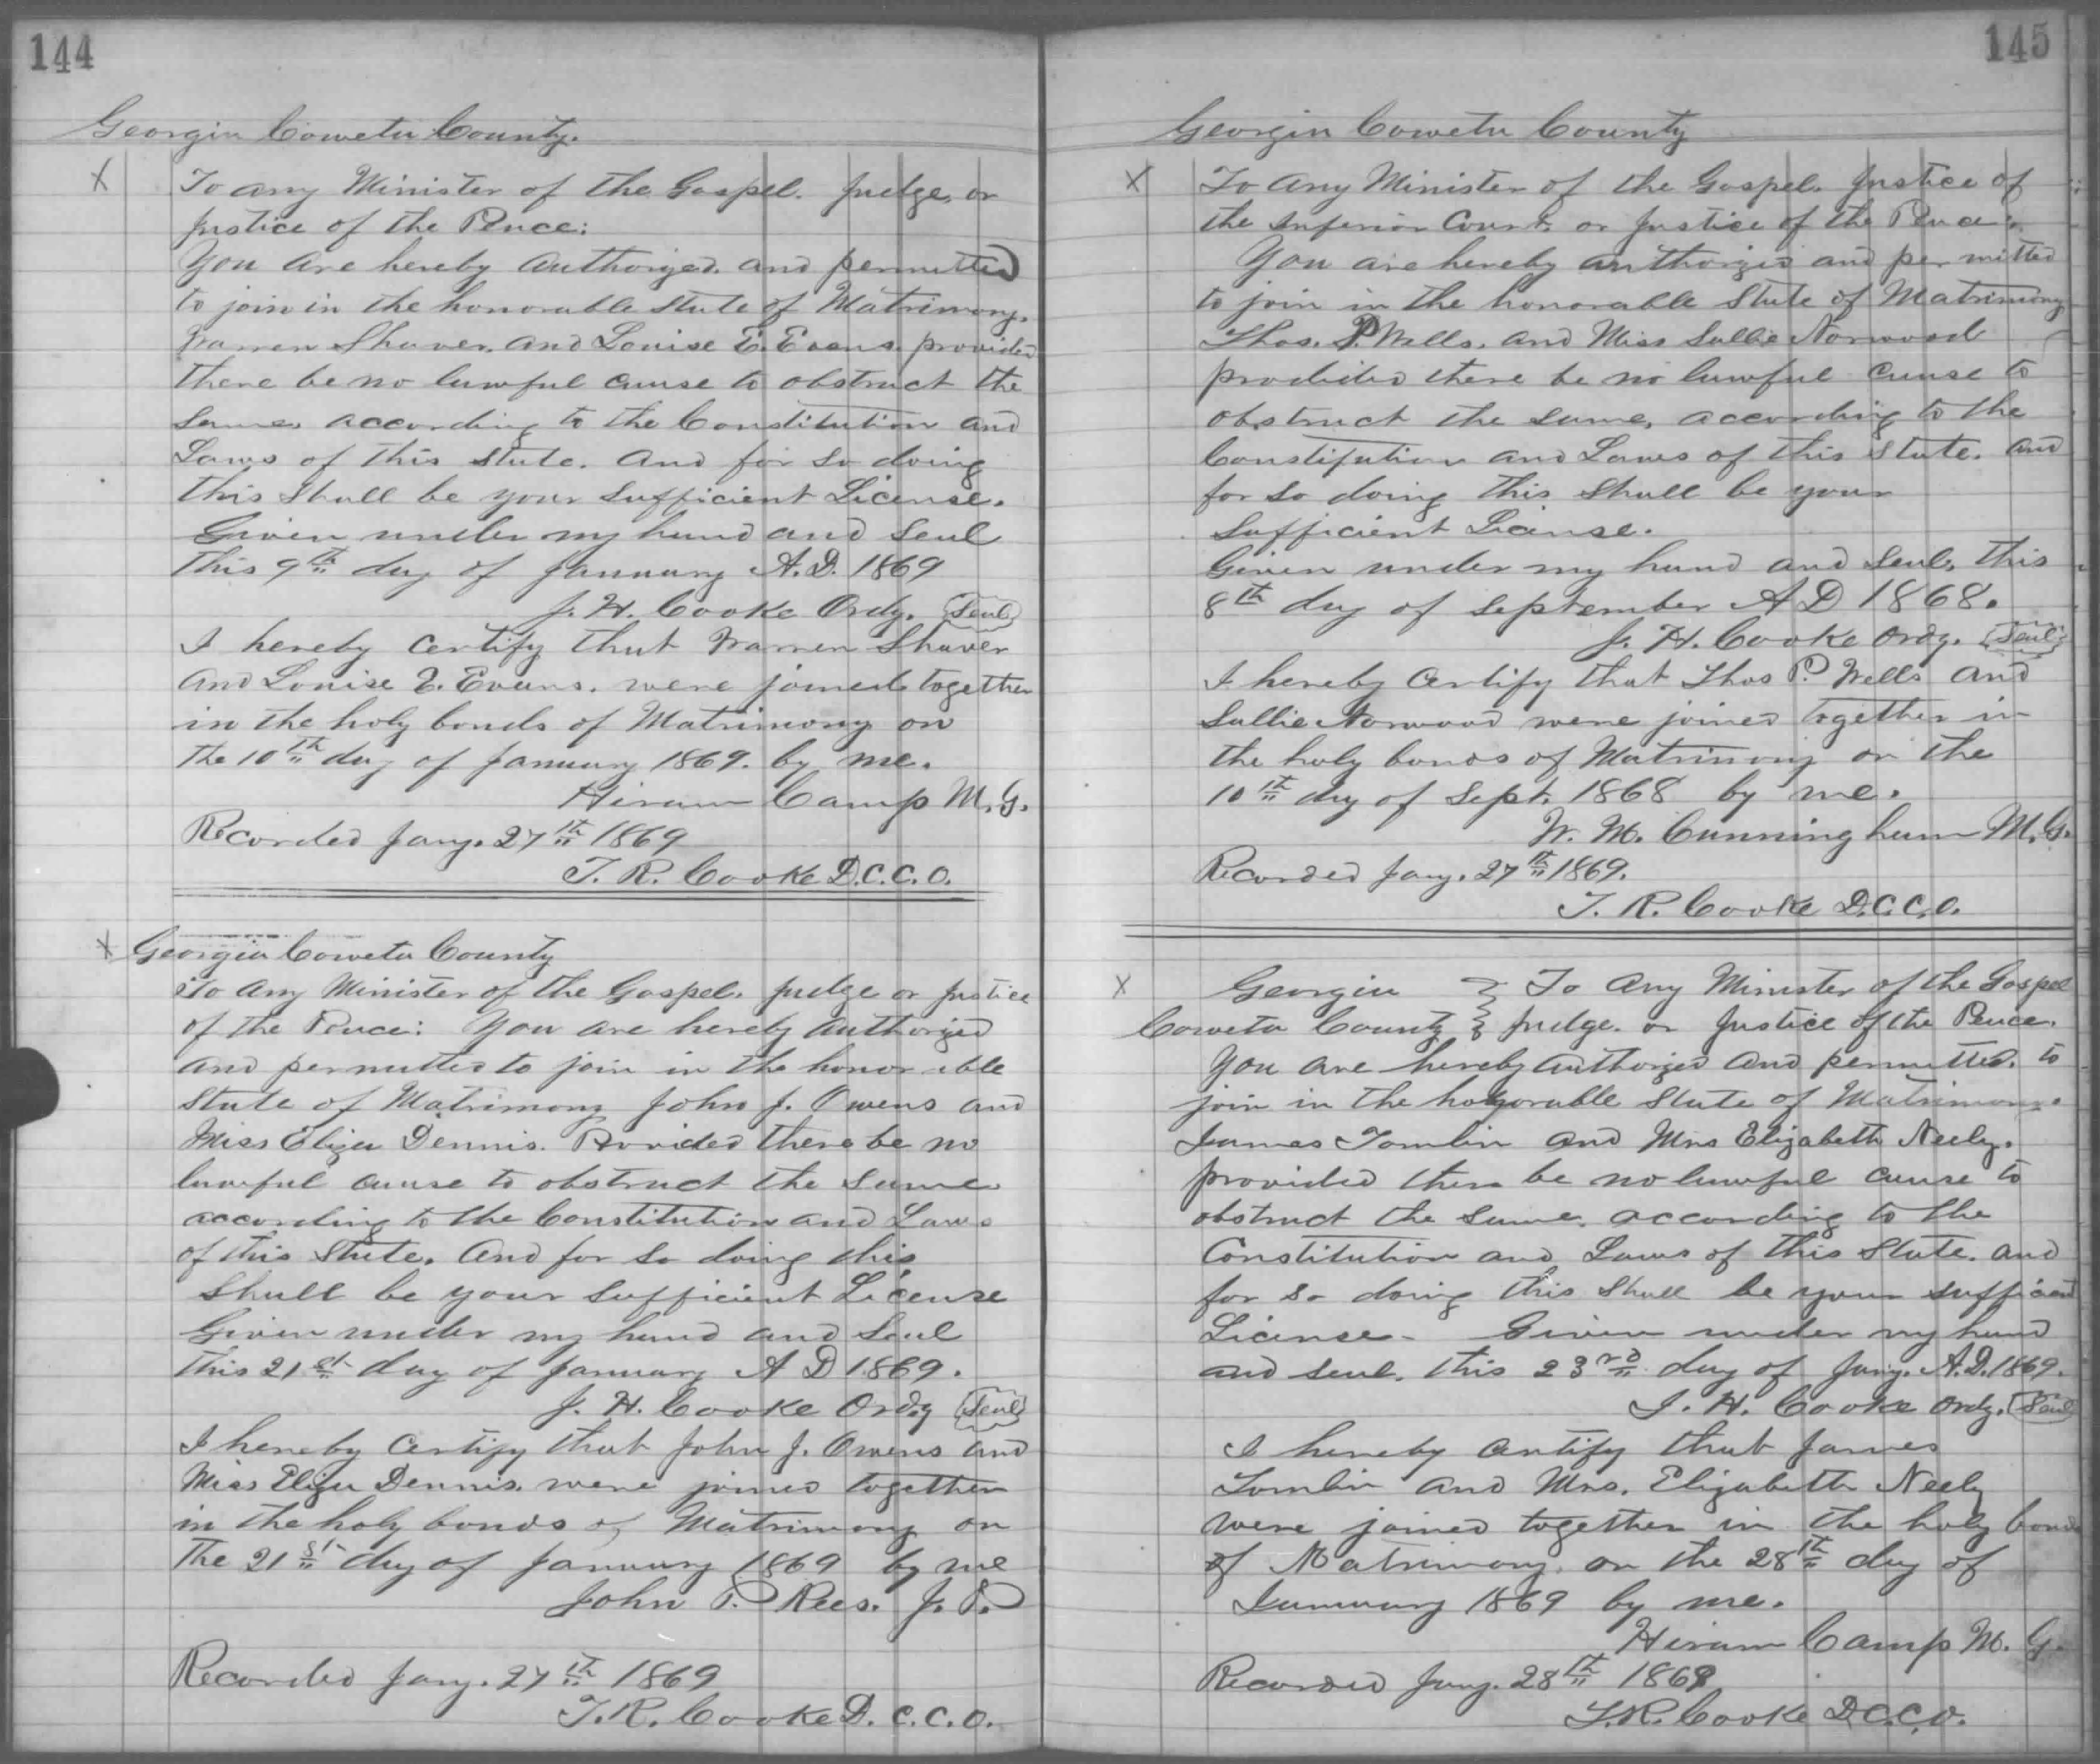 144
Georgia Coweta County.
X To any Minister of the Gospel. Judge, or
Justice of the Peace:
You are hereby authorized. and permitted
to join in the honorable state of Matrimony.
Warren Shaver. and Louise E. Evans. provided
there be no lawful cause to obstruct the
same. according to the Constitution and
Laws of this state. And for so doing
this shall be your sufficient License.
Given under my hand and seal
this 9th day of January A.D. 1869
J. H. Cooke Ordy. Seal
I hereby certify that Warren Shaver
and Louise E. Evans. were joined together
in the holy bonds of Matrimony on
the 10th day of January 1869. by me.
Hiram Camp M.G.
Recorded Jany. 27th 1869
T. R. Cooke D.C.C.O.
X Georgia Coweta County
To any Minister of the Gospel. Judge or Justice
of the Peace: You are hereby authorized
and permitted to join in the honorable
state of Matrimony John J. Owens and
Miss Eliza Dennis. Provided there be no
lawful cause to obstruct the same
according to the Constitution and Laws
of this State. And for so doing this
shall be your sufficient License
Given under my hand and Seal
this 21st day of January A D 1869.
J. H. Cooke Ordy Seal
I hereby certify that John J. Owens and
Miss Eliza Dennis. were joined together
in the holy bonds of Matrimony on
the 21st day of January 1869 by me
John P. Rees. J. P.
Recorded Jany. 27th 1869
T. R. Cooke D. C. C. O.
145
Georgia Coweta County
X To Any Minister of the Gospel. Justice of
the Inferior Court. or Justice of the Peace:
You are hereby authorized and permitted
to join in the honorable State of Matrimony
Thos. P. Wells. and Miss Sallie Norwood
provided there be no lawful cause to
obstruct the same, according to the
Constitution and Laws of this State. And
for so doing this shall be your
sufficient License.
Given under my hand and seal, this
8th day of September A D 1868.
J. H. Cooke Ordy. Seal
I hereby certify that Thos P. Wells and
Sallie Norwood were joined together in
the holy bonds of Matrimony on the
10th day of Sept. 1868 by me.
W. M. Cunningham M.G.
Recorded Jany. 27th 1869.
T. R. Cooke D.C.C.O.
X Georgia } To Any Minister of the Gospel
Coweta County } Judge. or Justice of the Peace.
You are hereby authorized and permitted. to
join in the honorable State of Matrimony.
James Tomlin and Mrs Elizabeth Neely.
provided there be no lawful cause to
obstruct the same. according to the
Constitution and Laws of this State. and
for so doing this shall be your sufficient
License- Given under my hand
and seal. this 23rd day of Jany. A.D. 1869.
J. H. Cooke Ordy. Seal
I hereby certify that James
Tomlin and Mrs. Elizabeth Neely
were joined together in the holy bonds
of Matrimony. on the 28th day of
January 1869 by me.
Hiram Camp M. G.
Recorded Jany. 28th 1869
T. R. Cooke D.C.C.O.